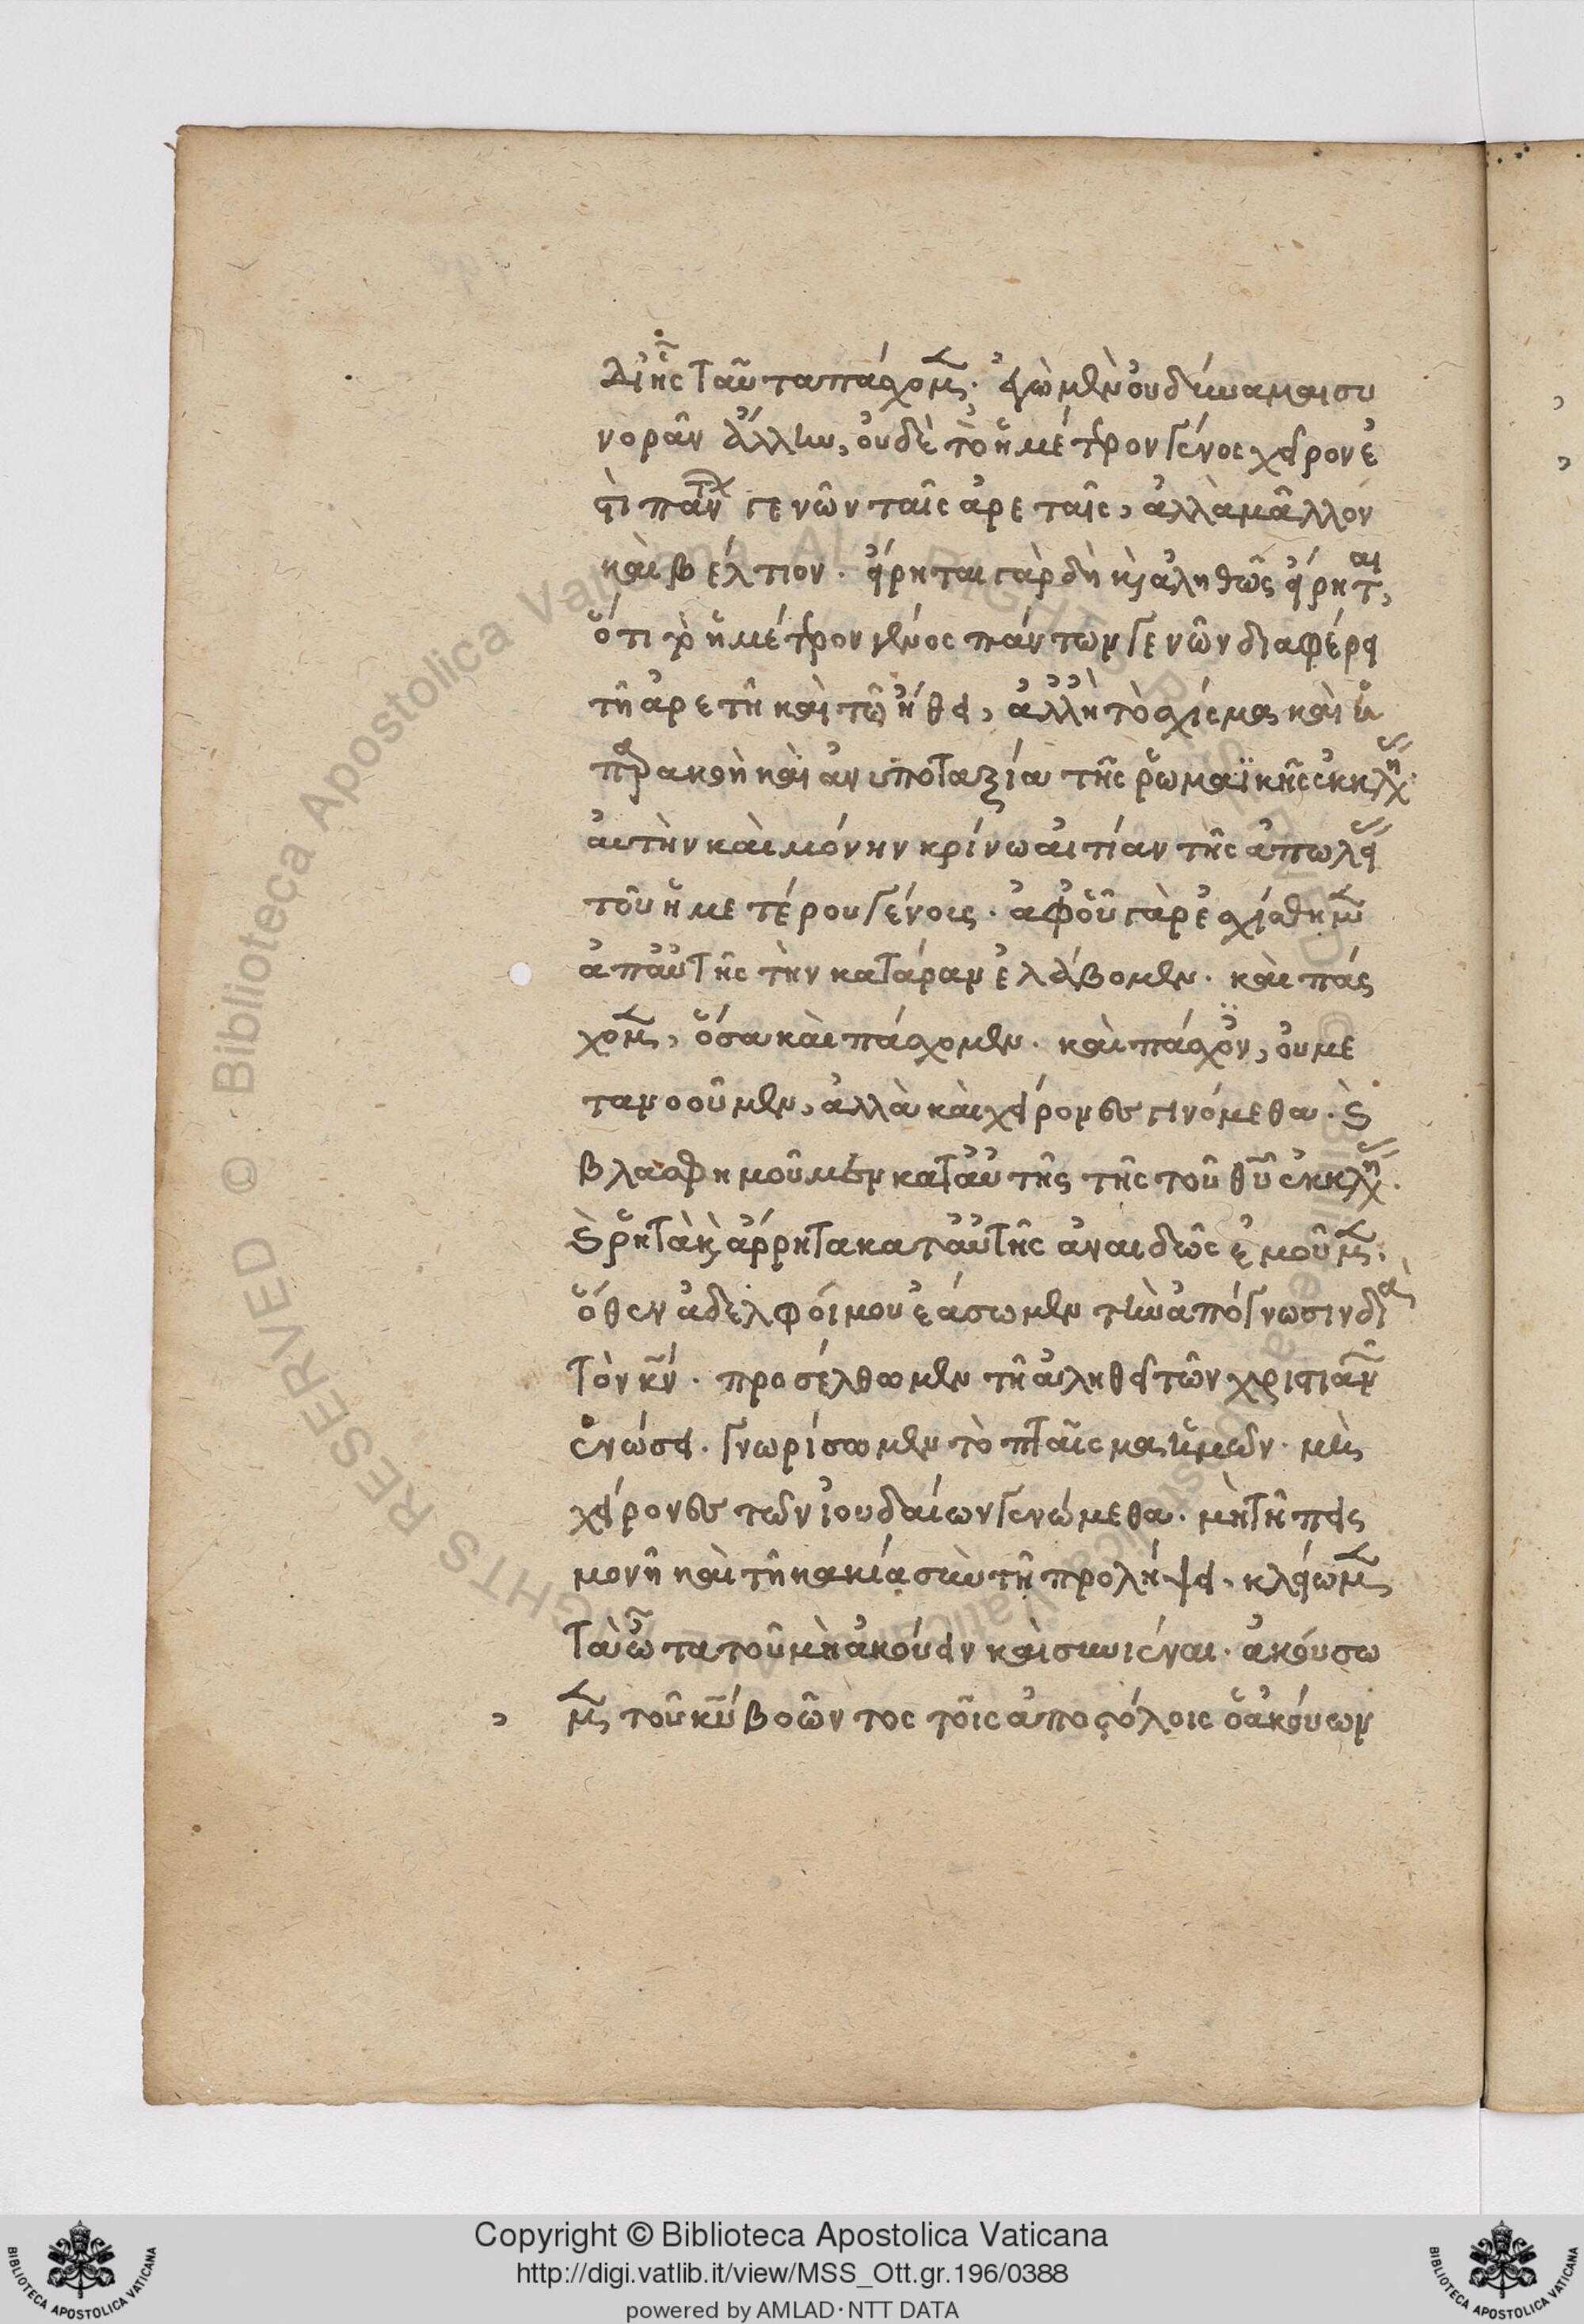 δι ἧς ταῦτα πάσχομ(εν). ἐγὼ μὲν οὐ δύναμαι συ
νορᾶν ἄλλην, οὐδὲ τὸ ἡμέτερον γένος χεῖρον ἐ
στὶ πάντ(ων) γενῶν ταῖς ἀρεταῖς, ἀλλὰ μᾶλλον
καὶ βέλτιον. εἴρηται γὰρ δὴ κ(αὶ) ἀληθῶς εἴρηται,
ὅτι τὸ ἡμέτερον γένος πάντων γενῶν διαφέρει
τῇ ἀρετῇ καὶ τῷ ἤθει, ἀλλ' ἢ τὸ σχίσμα καὶ ἡ
παρακοὴ καὶ ἀνυποταξία τῆς ῥωμαϊκῆς ἐκκλη(σίας)
αὐτὴν καὶ μόνην κρίνω αἰτίαν τῆς ἀπωλεί(ας)
τοῦ ἡμετέρου γένους. ἀφ' οὗ γὰρ ἐσχίσθημ(εν)
ἀπ' αὐτῆς τὴν κατάραν ἐλάβομεν. καὶ πάσ
χομ(εν), ὅσα καὶ πάσχομεν. καὶ πάσχον(τες), οὐ με
τανοοῦμεν, ἀλλὰ καὶ χείρονες γινόμεθα. κ(αὶ)
βλασφημοῦμεν κατ' αὐτῆς τῆς τοῦ θ(εο)ῦ ἐκκλη(σίας).
κ(αὶ) ῥητὰ κ(αὶ) ἄρρητα κατ' αὐτῆς ἀναιδῶς ἐμοῦμ(εν).
ὅθεν ἀδελφοί μου ἐάσωμεν τὴν ἀπόγνωσιν διὰ
τὸν κ(ύριο)ν. προσέλθωμεν τῇ ἀληθεῖ τῶν χριστιαν(ῶν)
ἑνώσει. γνωρίσωμεν τὸ πταῖσμα ἡμῶν. μὴ
χείρονες τῶν ἰουδαίων γενώμεθα. μὴ τῇ πεισ
μονῇ καὶ τῇ κακίᾳ σὺν τῇ προλήψει, κλείωμ(εν)
τὰ ὦτα τοῦ μὴ ἀκούειν καὶ συνιέναι. ἀκούσω
μ(εν) τοῦ κ(υρίο)υ βοῶντος τοῖς ἀποστόλοις ὁ ἀκούων
Copyright © Biblioteca Apostolica Vaticana
http://digi.vatlib.it/view/MSS_Ott.gr.196/0388
powered by AMLAD·NTT DATA